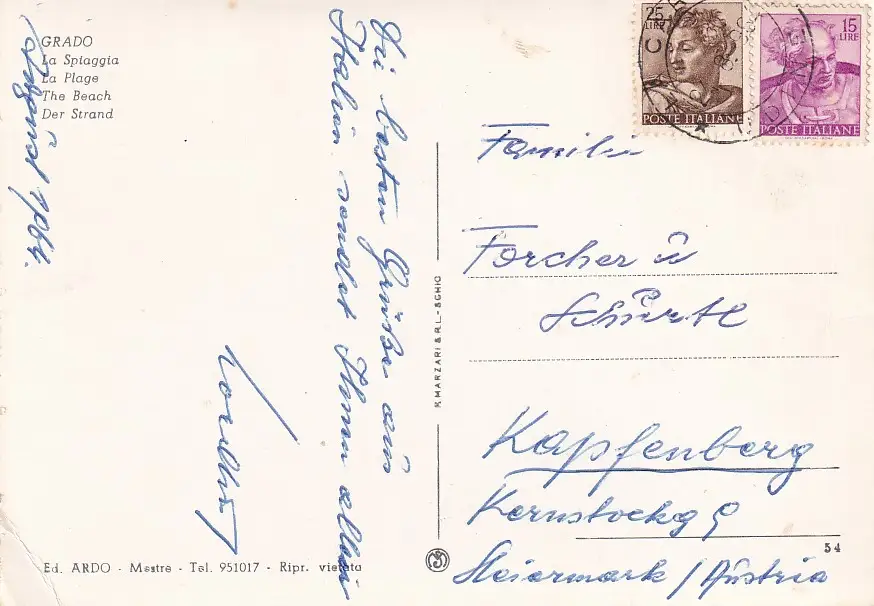 GRADO
La Spiaggia
La Plage
The Beach
Der Strand
August 1964.
Die besten Grüße aus
Italien sendet Ihnen allen
25
LIRE
POSTE ITALIANE
15
LIRE
POSTE ITALIANE
Familie
Forcher u
Kapfenberg
Kernstockg 9
Steiermark / Austria
54
K MARZARI S.R.L. - SCHIO
Ed. ARDO - Mestre - Tel. 951017 - Ripr. vietata